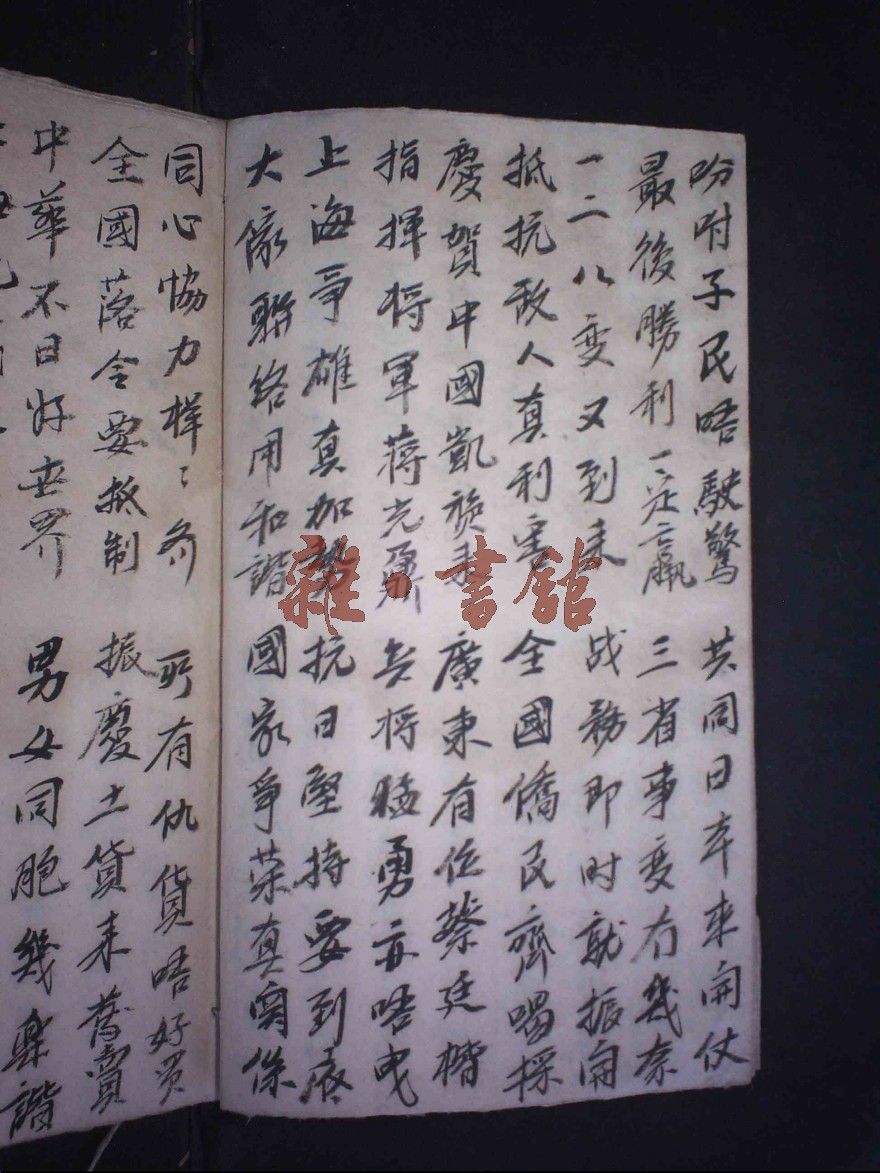 吩咐子民唔駛驚 共同日本来開仗
最後勝利一定贏 三省事变冇幾奈
一二八变又到来 战務即时就振開
抵抗敌人真利害 全國僑民齊喝採
慶賀中國凱旋来 廣東有位蔡廷楷
指揮将軍蒋光鼐 兵将猛勇亦唔曳
上海爭雄真加勢 抗日堅持要到底
大家聯络用和諧 國家爭荣真関係
同心協力样〻齐 所有仇貨唔好买
全國落令要抵制 振慶土貨来舊賣
中華不日好世界 男女同胞幾樂諧
雜·書館